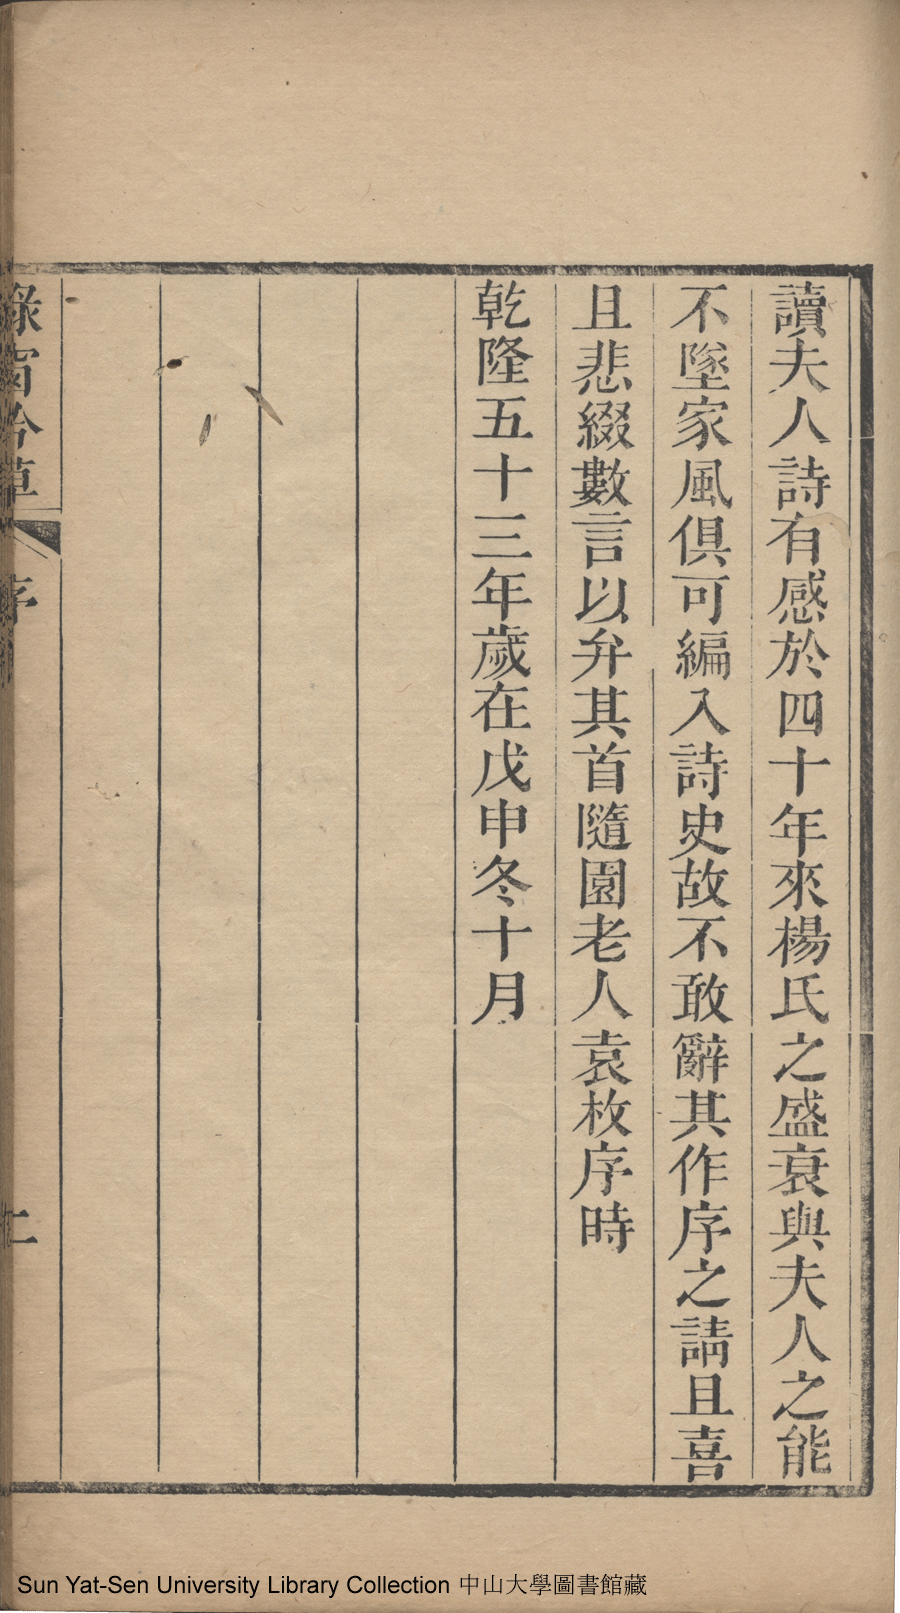 讀夫人詩有感於四十年來楊氏之盛衰與夫人之能
不墜家風俱可編入詩史故不敢辭其作序之請且喜
且悲綴數言以弁其首隨園老人袁枚序時
乾隆五十三年歲在戊申冬十月
綠窗吟草 序 二
Sun Yat-Sen University Library Collection 中山大學圖書館藏